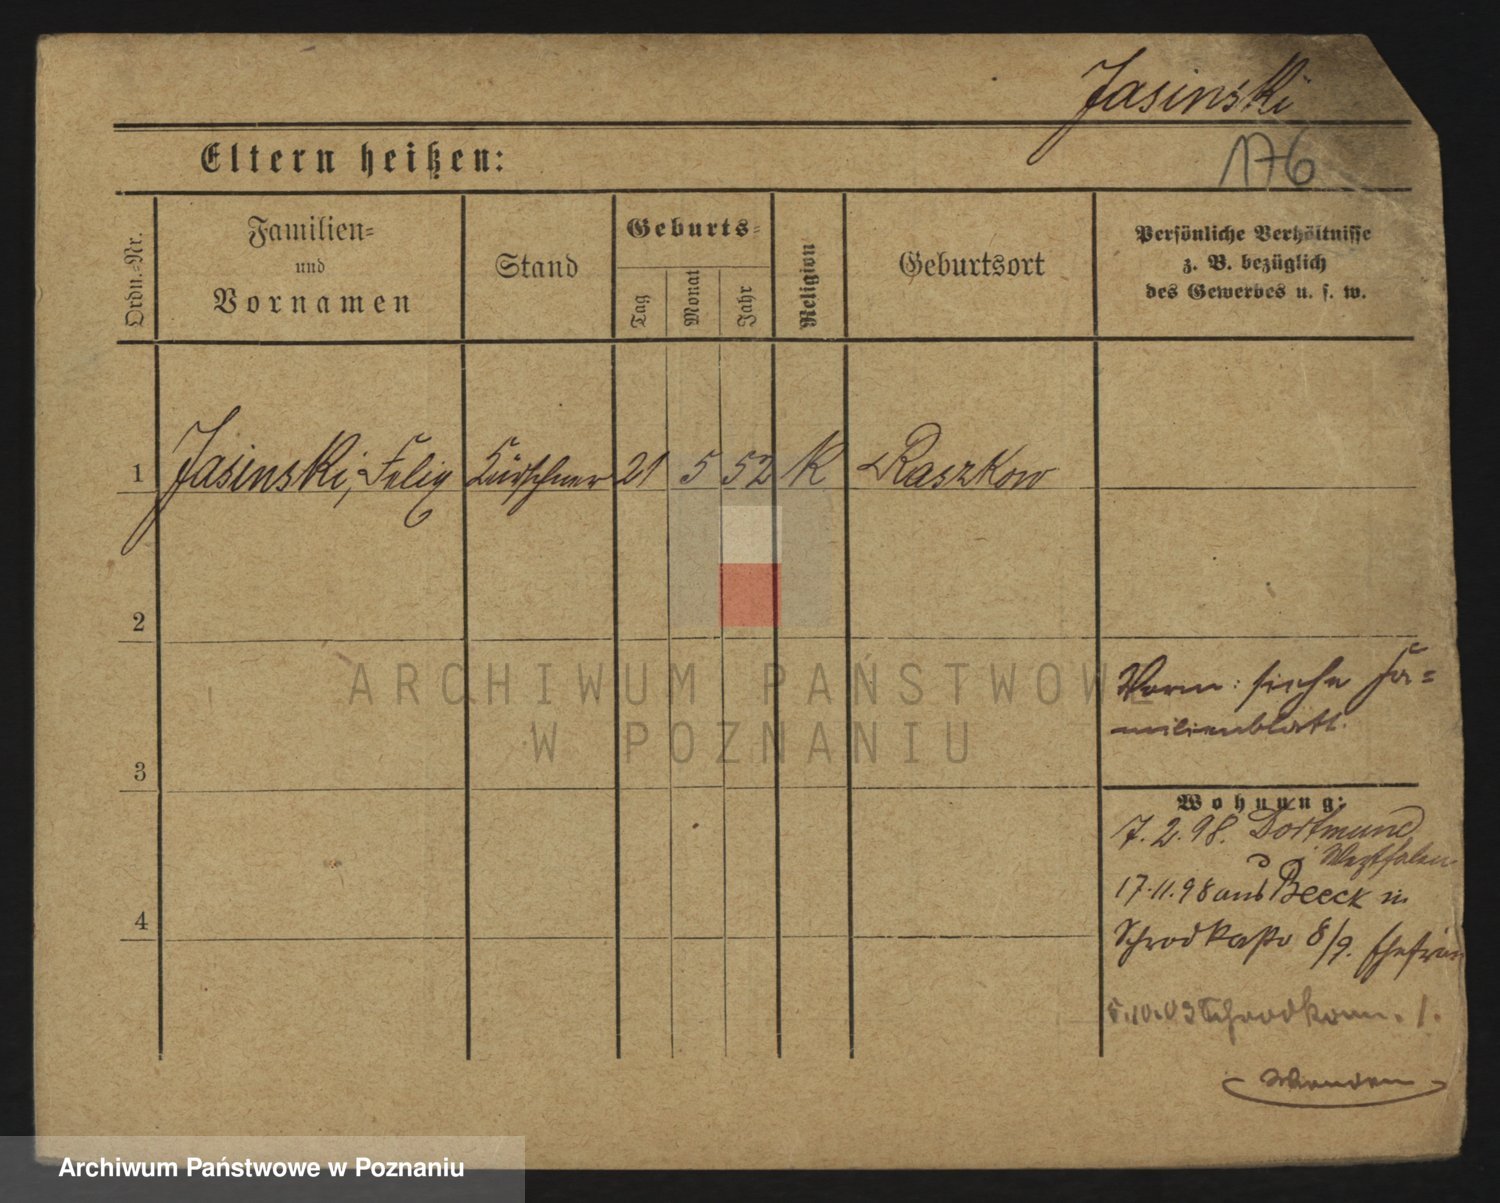 Jasinski
176
Eltern heißen:
Ordn.-Nr.
Familien-
und
Vornamen
Stand
Geburts-
Tag
Monat
Jahr
Religion
Geburtsort
Persönliche Verhältnisse
z. B. bezüglich
des Gewerbes u. s. w.
1 Jasinski, Felix Kürschner 21 5 52 K Raszkow
2
ARCHIWUM PAŃSTWOWE
W POZNANIU
Verm: siehe Fa=
milienblatt.
3
Wohnung:
7.2.98. Dortmund
Westfalen
17.11.98 aus Beeck in
Schrodkastr 8/9. Ehefrau
4
5.10.03 Schrodkam. 1.
Wenden
Archiwum Państwowe w Poznaniu